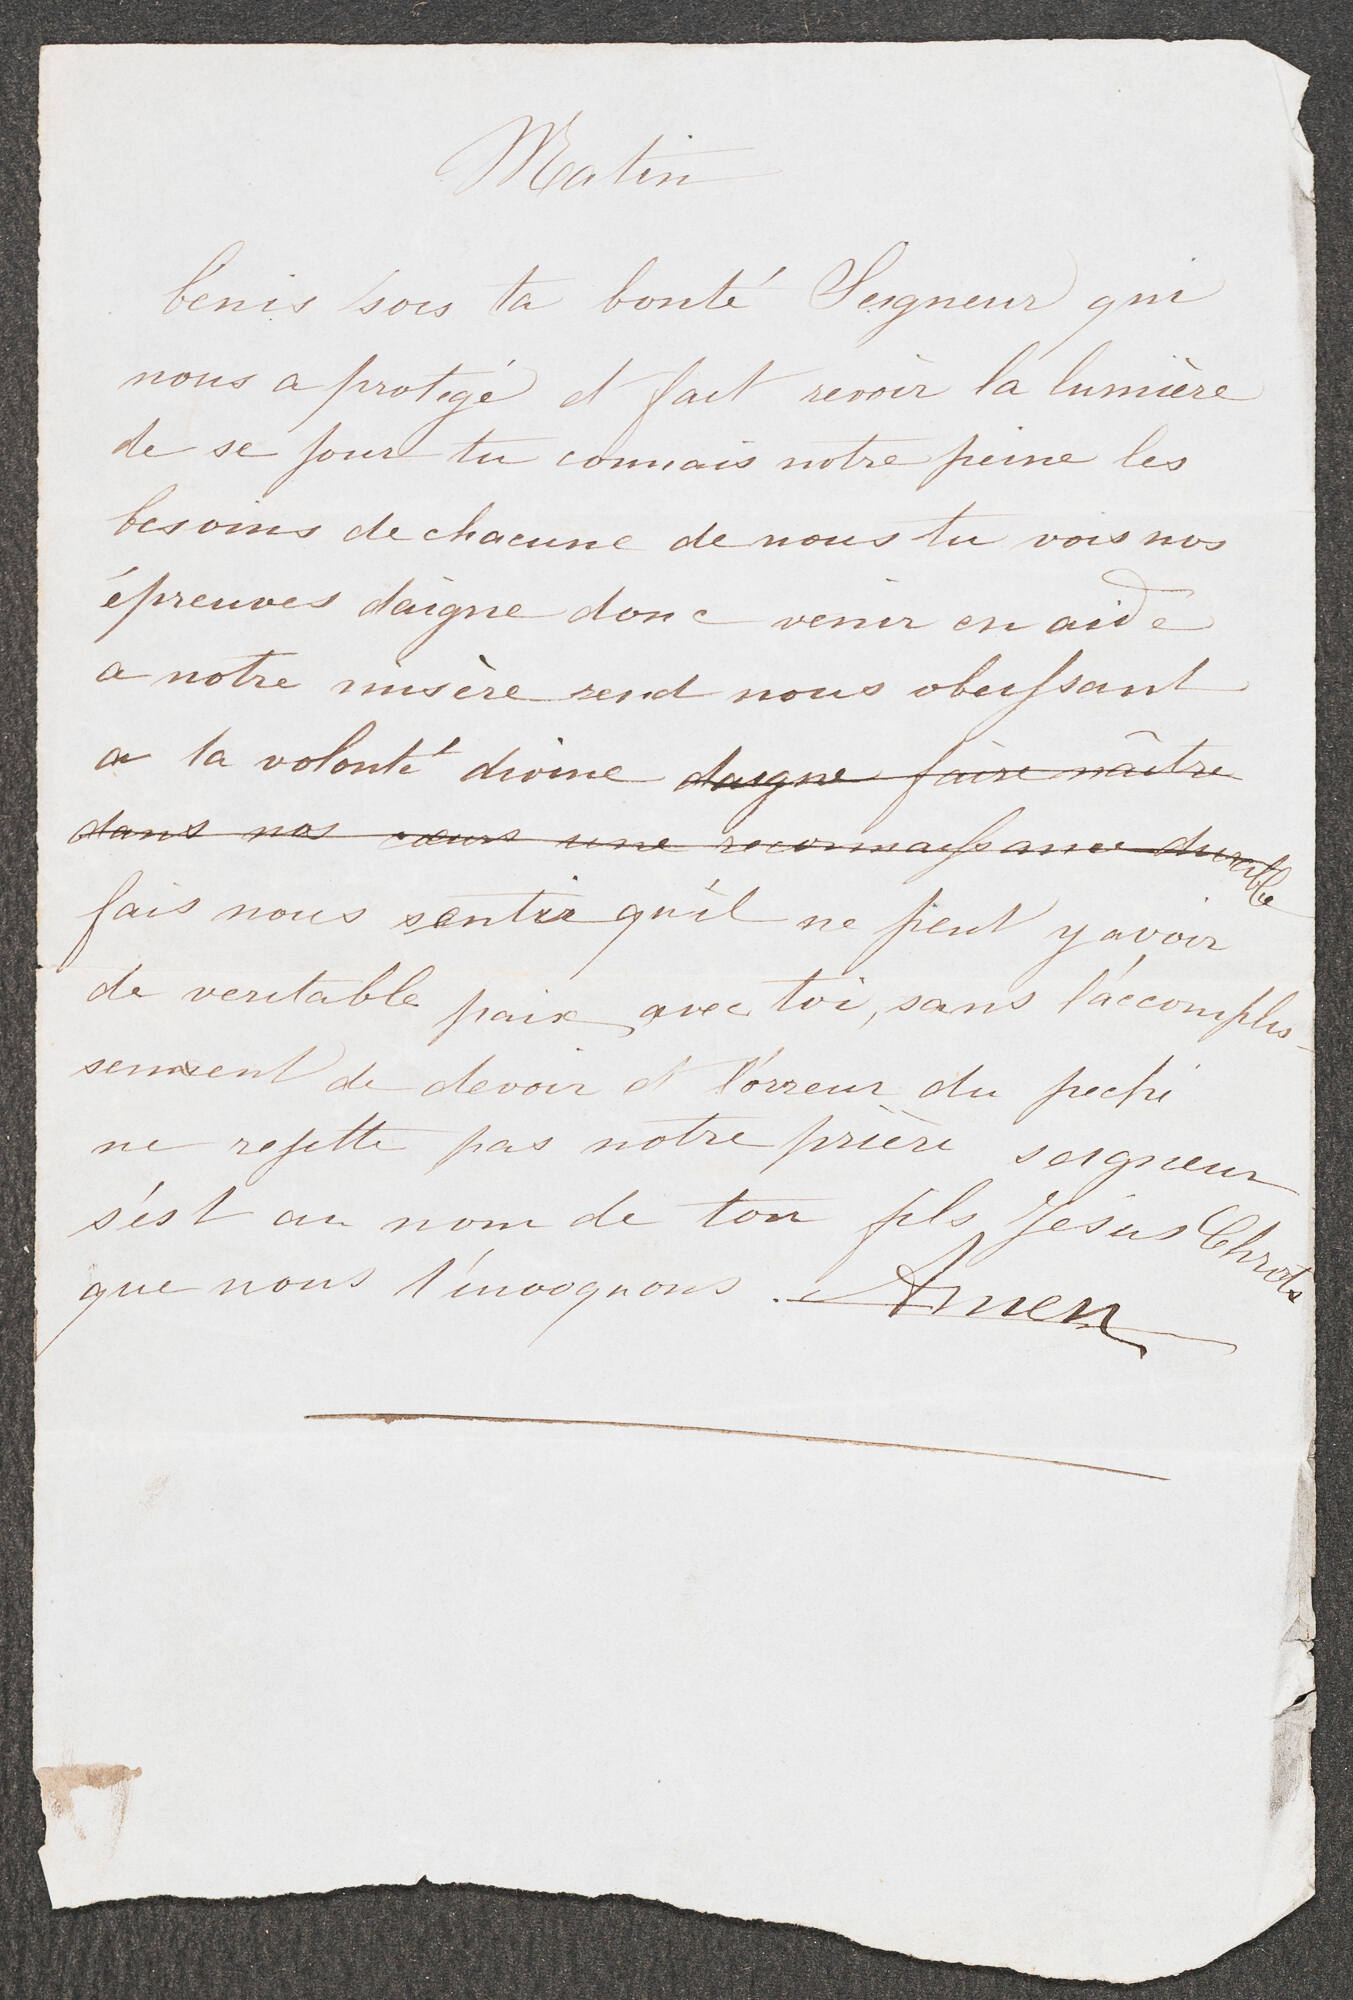 Matin
bénis sois ta bonté Seigneur qui
nous a protégé et fait revoir la lumière
de se jour tu connais notre peine les
besoins de chacune de nous tu vois nos
épreuves daigne donc venir en aide
a notre misère rend nous obeissant
a ta volonté divine daigne faire naître
dans nos cœurs une reconnaissance durable
fais nous sentir qu'il ne peut y avoir
de veritable paix avec toi, sans l'accomplis-
sement de devoir et l'orreur du peché
ne rejette pas notre prière seigneur
s'est au nom de ton fils Jésus Christs
que nous t'invoquons. Amen